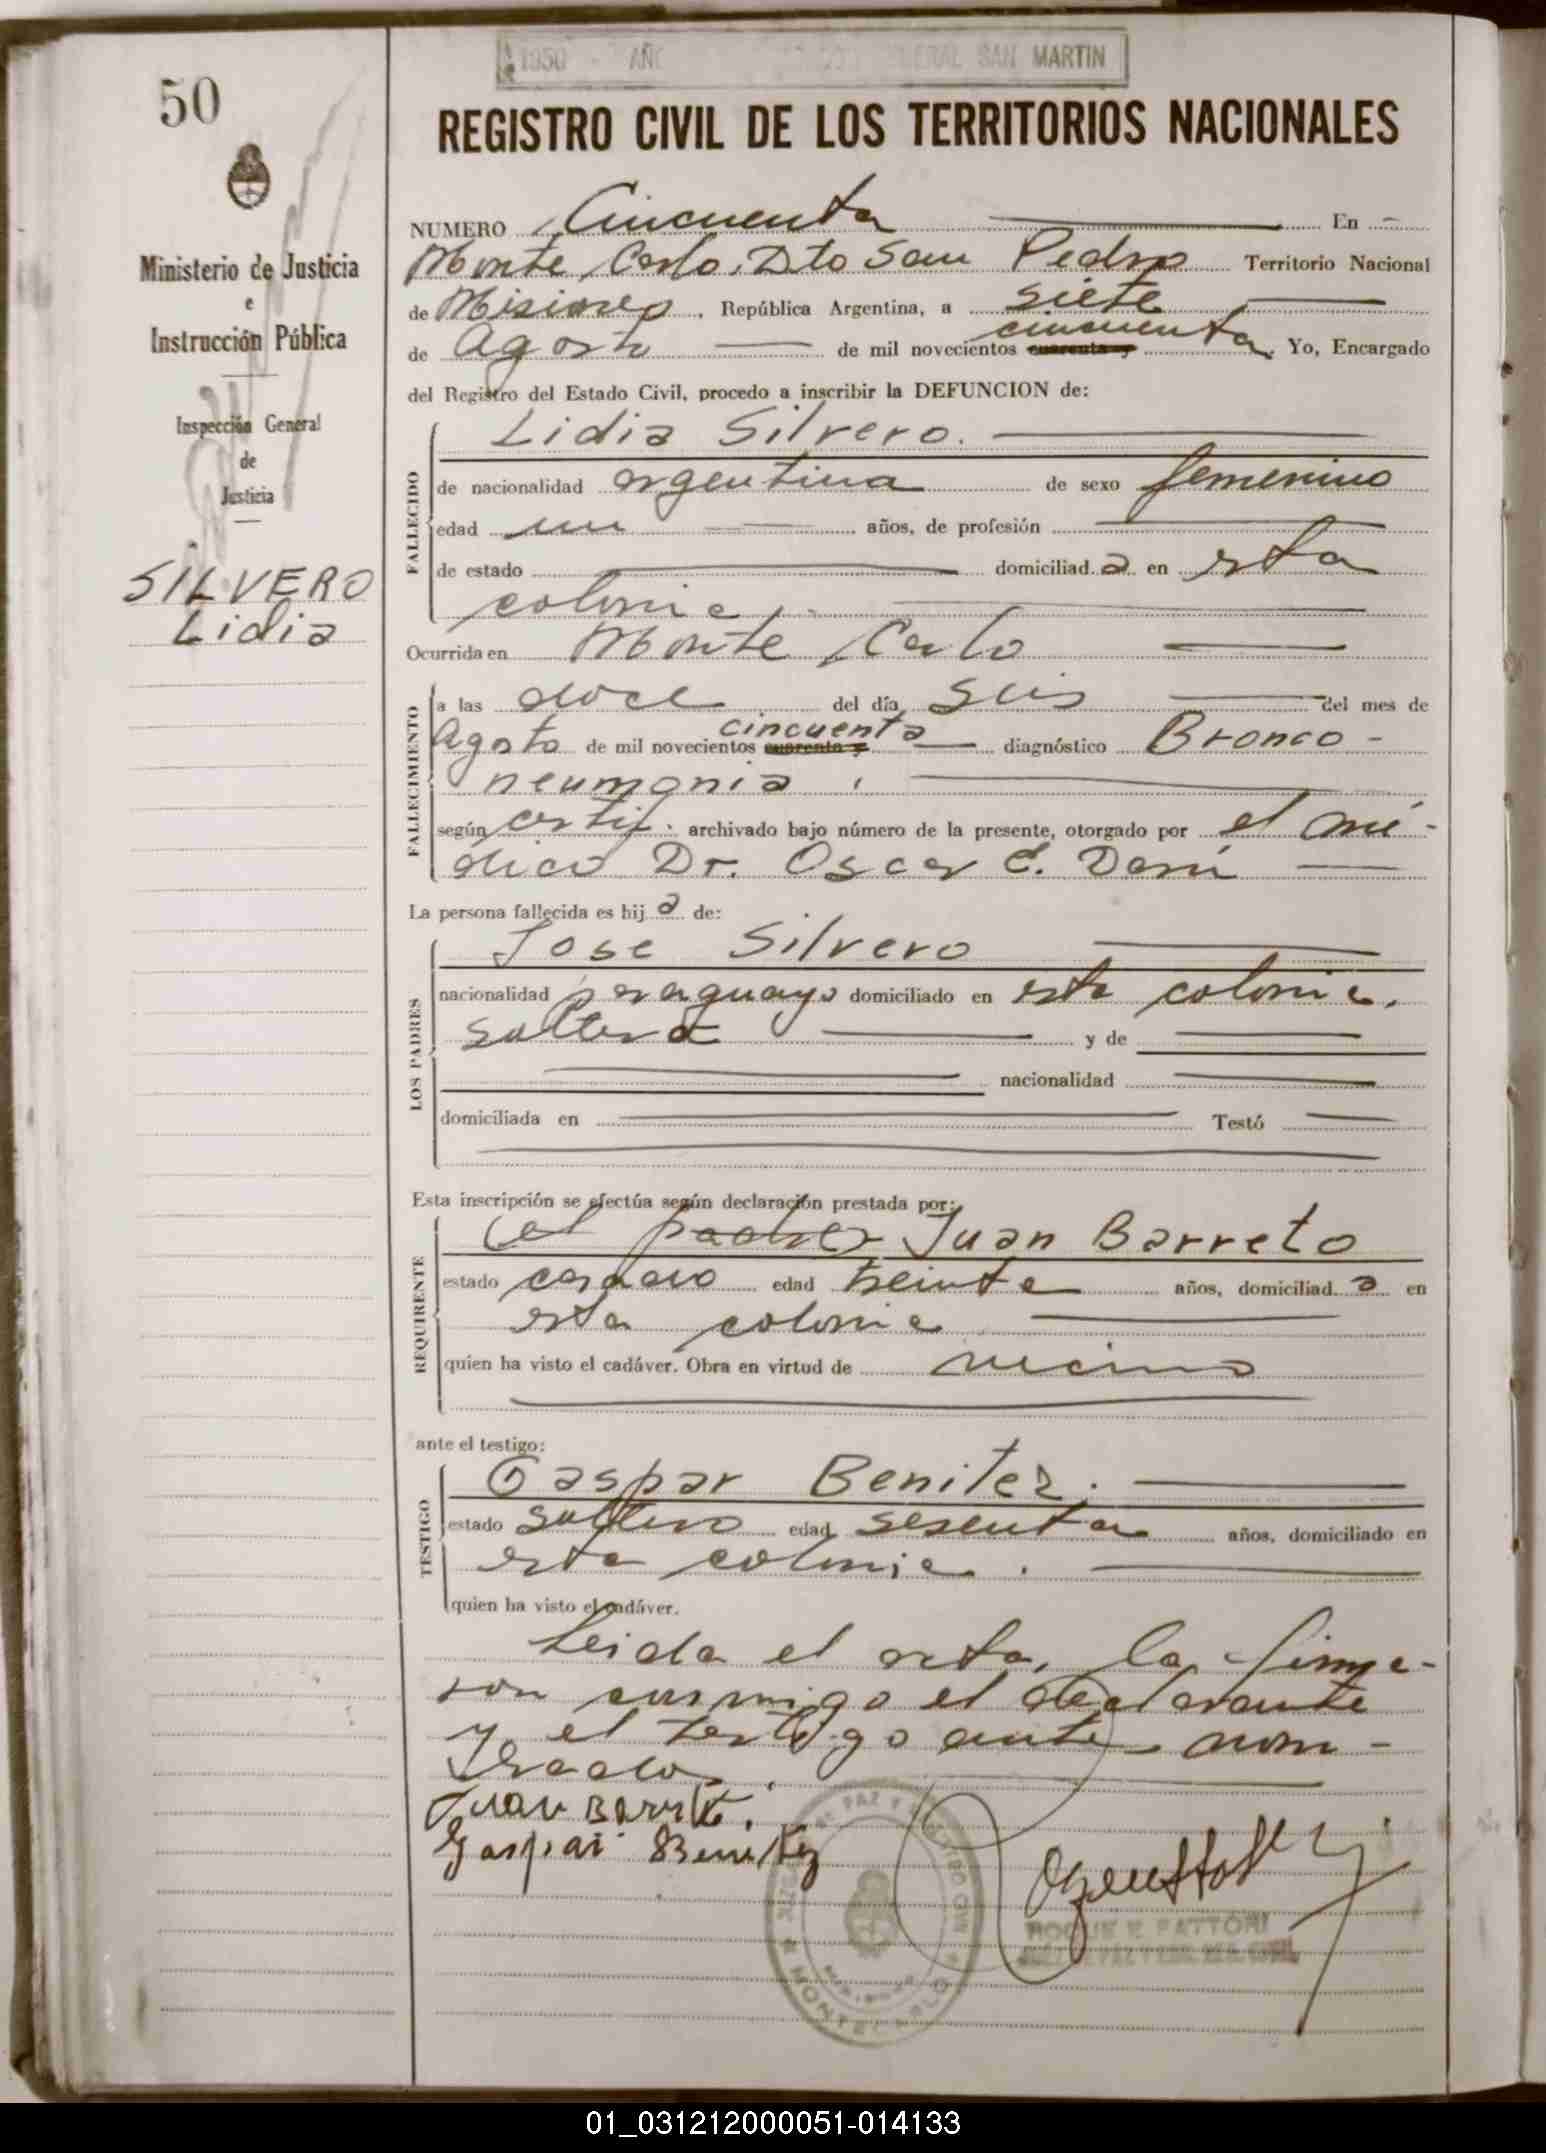 1950 - AÑO GENERAL SAN MARTIN
50
REGISTRO CIVIL DE LOS TERRITORIOS NACIONALES
NUMERO Cincuenta En
Monte Carlo, Dto San Pedro Territorio Nacional
de Misiones, República Argentina, a siete
de Agosto de mil novecientos cuarenta y cincuenta. Yo, Encargado
del Registro del Estado Civil, procedo a inscribir la DEFUNCION de:
Ministerio de Justicia
e
Instrucción Pública
Inspección General
de
Justicia
SILVERO
Lidia
FALLECIDO
Lidia Silvero.
de nacionalidad argentina de sexo femenino
edad un años, de profesión
de estado domiciliad a en esta
colonia.
Ocurrida en Monte Carlo
FALLECIMIENTO
a las doce del día seis del mes de
Agosto de mil novecientos cuarenta y cincuenta diagnóstico Bronco-
neumonia.
según certif. archivado bajo número de la presente, otorgado por el mé-
dico Dr. Oscar E.
La persona fallecida es hij a de:
LOS PADRES
Jose Silvero
nacionalidad paraguayo domiciliado en esta colonia,
soltero y de
nacionalidad
domiciliada en Testó
Esta inscripción se efectúa según declaración prestada por:
REQUIRENTE
(el padre) Juan Barreto
estado casado edad treinta años, domiciliad o en
esta colonia
quien ha visto el cadáver. Obra en virtud de vecino
ante el testigo:
TESTIGO
Gaspar Benitez.
estado soltero edad sesenta años, domiciliado en
esta colonia.
quien ha visto el cadáver.
Leida el acta, la firma-
ron conmigo el declarante
y el testigo ante nom-
brados.
Juan Barreto.
Gaspar Benitez
JUZGADO DE PAZ Y REGISTRO CIVIL
MISIONES
MONTECARLO
ROQUE F. FATTORI
01_031212000051-014133